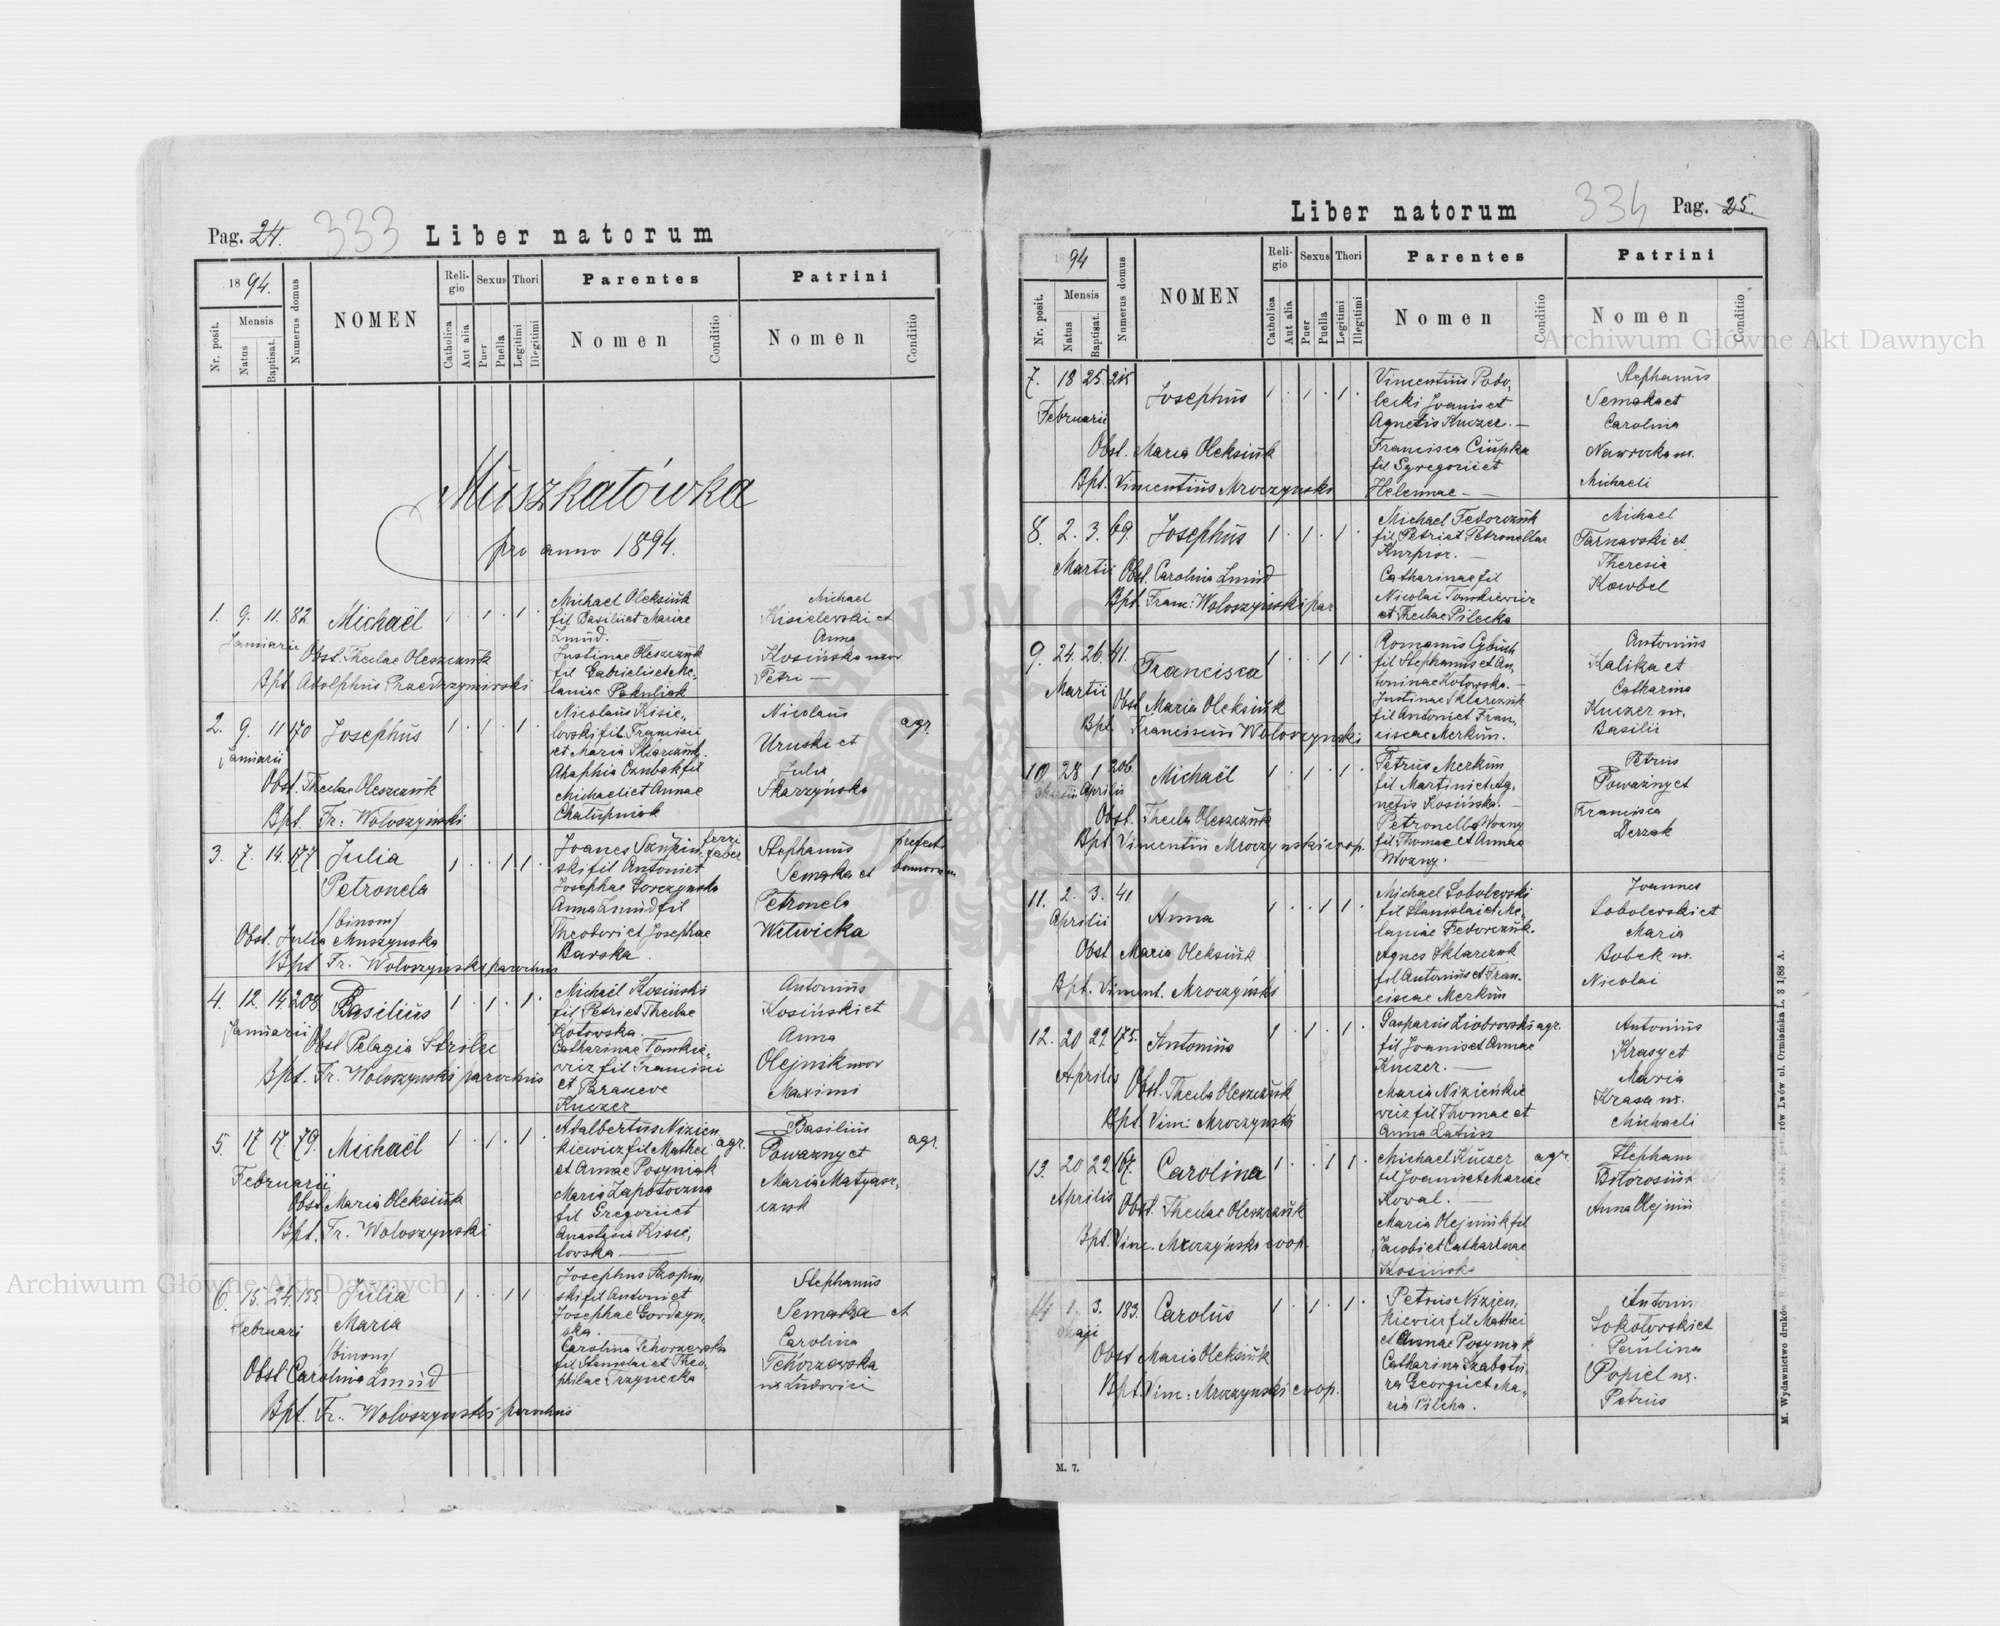 Pag. 24. 333 Liber natorum
1894.
Nr. posit.
Mensis
Natus
Baptisat.
Numerus domus
NOMEN
Religio
Catholica
Aut alia
Sexus
Puer
Puella
Thori
Legitimi
Illegitimi
Parentes
Nomen
Conditio
Patrini
Nomen
Conditio
Muszkatówka
pro anno 1894.
1. 9. 11. 82. Michaël 1 . 1 . 1 .
Januarii
Obst. Theclae Oleszczuk
Bpt. Adolphus Przedrzymirski
Michael Oleksiuk
fil Basilii et Mariae
Zmud.
Justinae Oleszczuk
fil Gabrielis et Me-
laniae Pokuliak
Michael
Kisielevski et
Anna
Kosińska uxor
Petri —
2. 9. 11 170 Josephus 1 . 1 . 1 .
Januarii
Obst. Theclae Oleszczuk
Bpt. Fr: Woloszyński
Nicolaus Kisie-
lovski fil. Francisci
et Maria Sklarczuk.
Ahaphia Cznbak fil
Michaeli et Annae
Chałupniak
Nicolaus
Uruski et
Julia
Skarzyńska
agr.
3. 7. 14. 177 Julia 1 . . 1 1 .
Petronela
/binom/
Obst. Julia Muszynska
Bpt Fr. Woloszynski parochus
ski fil Antoni et
Josephae Gorczynska
Anna Zmud fil
Theodori et Josephae
Barska.
ferri
faber
Stephanus
Semaka et
Petronela
Witwicka
prefect.
bonorum
4. 12. 14 208. Basilius 1 . 1 . 1 .
Januarii
Obst Pelagia Strilec
Bpt. Fr. Woloszynski parochus
Michaël Kosiński
fil. Petri et Theclae
Kotowska. —
Catharinae Tomkie-
wicz fil Francisci
et Parasceve
Kuczer
Antonius
Kosiński et
Anna
Olejnik uxor
Maximi
5. 17 17. 79. Michaël 1 . 1 . 1 .
Februarii
Obst Maria Oleksiuk
Bpt. Fr. Woloszynski
Adalbertus Nizien
kiewicz fil Mathei
et Annae Posyniak
Maria Zapotoczna
fil Gregorii et
Anastasia Kisie-
lovska —
agr.
Basilius
Powazny et
Maria Matyasz-
czuk
agr.
6. 15. 24. 155. Julia 1 . . 1 1 .
Februari
Maria
/binom/
Obst Carolina Zmud
Bpt. Fr. Woloszynski parochus
ski fil Antoni et
ska. —
Carolina Tchorzewska
fil Stanislai et Theo-
philae Trzynecka
Stephanus
Semaka et
Carolina
Tchorzewska
ux Ludovici
Liber natorum 334 Pag. 25.
1894
Nr. posit.
Mensis
Natus
Baptisat.
Numerus domus
NOMEN
Religio
Catholica
Aut alia
Sexus
Puer
Puella
Thori
Legitimi
Illegitimi
Parentes
Nomen
Conditio
Patrini
Nomen
Conditio
7. 18 25. Josephus 1 . 1 . 1 .
Februarii
Obst. Maria Oleksiuk
Bpt. Vincentius Mroczynski
Vincentius Podo-
lecki Joanis et
Agnetis Kuczer. —
Francisca Ciupka
fil Gregorii et
Helennae —
Stephanus
Semaka et
Carolina
Nawrocka ux.
Michaeli
8. 2. 3. 69. Josephus 1 . 1 . 1 .
Martii
Obst. Carolina Zmud
Bpt. Franc: Woloszyński par
Michael Fedorczuk
fil Petri et Petronellae
Catharinae fil
Nicolai Tomkiewicz
et Theclae Pilecka
Michael
Tarnavski et
Theresia
9. 24. 26. 41. Francisca 1 . . 1 1 .
Martii
Obst Maria Oleksiuk
Bpt. Franciscus Woloszynski
fil Stephanus et An-
toninae Kotowska. —
Justinae Sklarczuk
fil Antoni et Fran-
ciscae Merkun.
Antonius
Kalika et
Catharina
Kuczer ux.
Basilii
10. 28 1 206. Michaël 1 . 1 . 1 .
Martii Aprilis
Obst. Thecla Oleszczuk
Bpt. Vincentiu Mroczynski coop.
Petrus Merkun
fil Martini et Ag-
netis Kosińska. —
Petronella Wozny
fil Thomae et Annae
Wozny. —
Petrus
Poważny et
Francisca
Derzak
11. 2. 3. 41 Anna 1 . . 1 1 .
Aprilii
Obst Maria Oleksiuk
Bpt. Vincent. Mroczyński
Michael Sobolevski
fil Stanislai et Me-
laniae Fedorczuk.
Agnes Sklarczuk
fil Antonius et Fran-
ciscae Merkun
Joannes
Sobolevski et
Maria
Bobek ux.
Nicolai
12. 20 22 175. Antonius 1 . 1 . 1 .
Aprilis
Obst. Thecla Oleszczuk
Bpt. Vinc: Mroczynski
Gasparus Ziobrowski
fil Joanis et Annae
Kuczer. —
Maria Nizieńkie
wicz fil Thomae et
Anna Latusz
agr.
Antonius
Krasy et
Maria
Krasa ux.
Michaeli
13. 20 22 167. Carolina 1 . . 1 1 .
Aprilis
Obst. Theclae Oleszczuk
Bpt. Vinc. Mroczyński coop.
Michael Kuczer
fil Joanis et Mariae
Koval. —
Maria Olejniuk fil
Jacobi et Catharinae
Kosinska
agr.
Stephan
Anna Olejniu
14 1. 3. 183. Carolus 1 . 1 . 1 .
Maji
Obst Maria Oleksiuk
Bpt. Vinc: Mroczynski coop.
Petrus Nizien-
kiewicz fil Mathei
et Annae Posyniak
Catharina Szabatu-
ra Georgii et Ma-
ria Pilcha.
Antoniu
Sokolovski et
Paulina
Popiel ux.
Petrus
M. 7.
Archiwum Główne Akt Dawnych
Archiwum Główne Akt Dawnych
ARCHIWUM GŁÓWNE AKT DAWNYCH